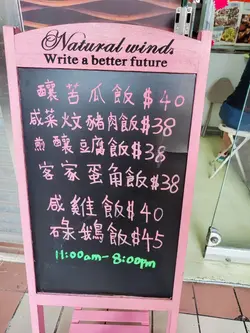 Natural wind
Write a better future
釀苦瓜飯$40
咸菜炆豬肉飯$38
煎釀豆腐飯$38
客家蛋角飯$38
咸雞飯$40
碌鵝飯$45
11:00am-8:00pm